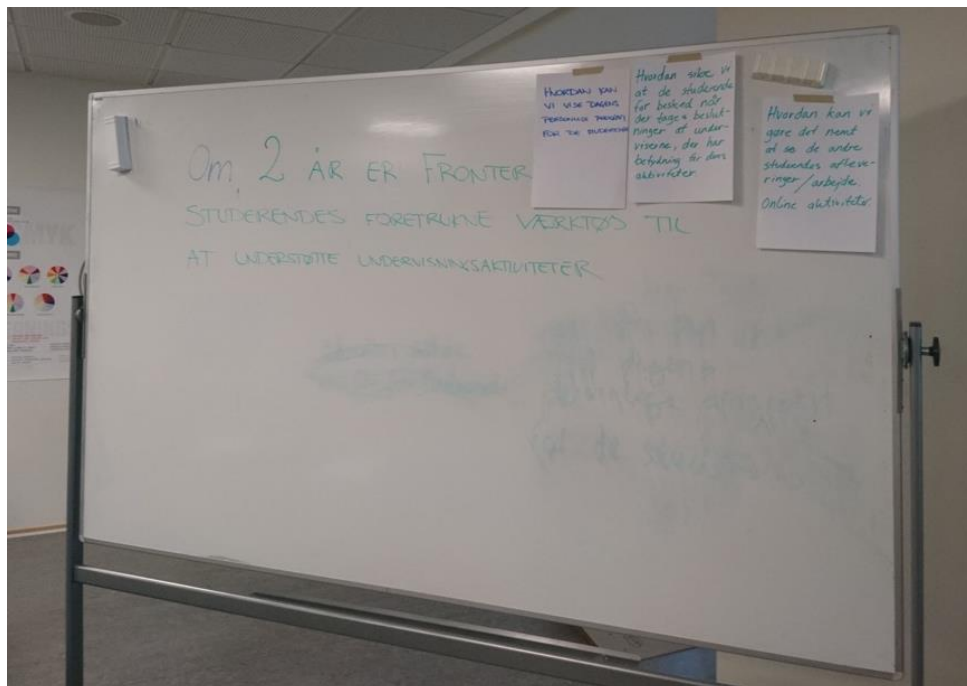 Om 2 ÅR ER FRONTER
STUDERENDES FORETRUKNE VÆRKTØJ TIL
AT UNDERSTØTTE UNDERVISNINGSAKTIVITETER
HVORDAN KAN
VI VISE DAGENS
PERSONLIGE
FOR DE STUDERENDE
Hvordan sikre vi
at de studerende
får besked når
der tages beslut-
ninger af under-
viserne, der har
betydning for deres
aktiviteter.
Hvordan kan vi
gøre det nemt
at se de andre
studerendes afleve-
ringer/arbejde.
Online aktiviteter
MYK